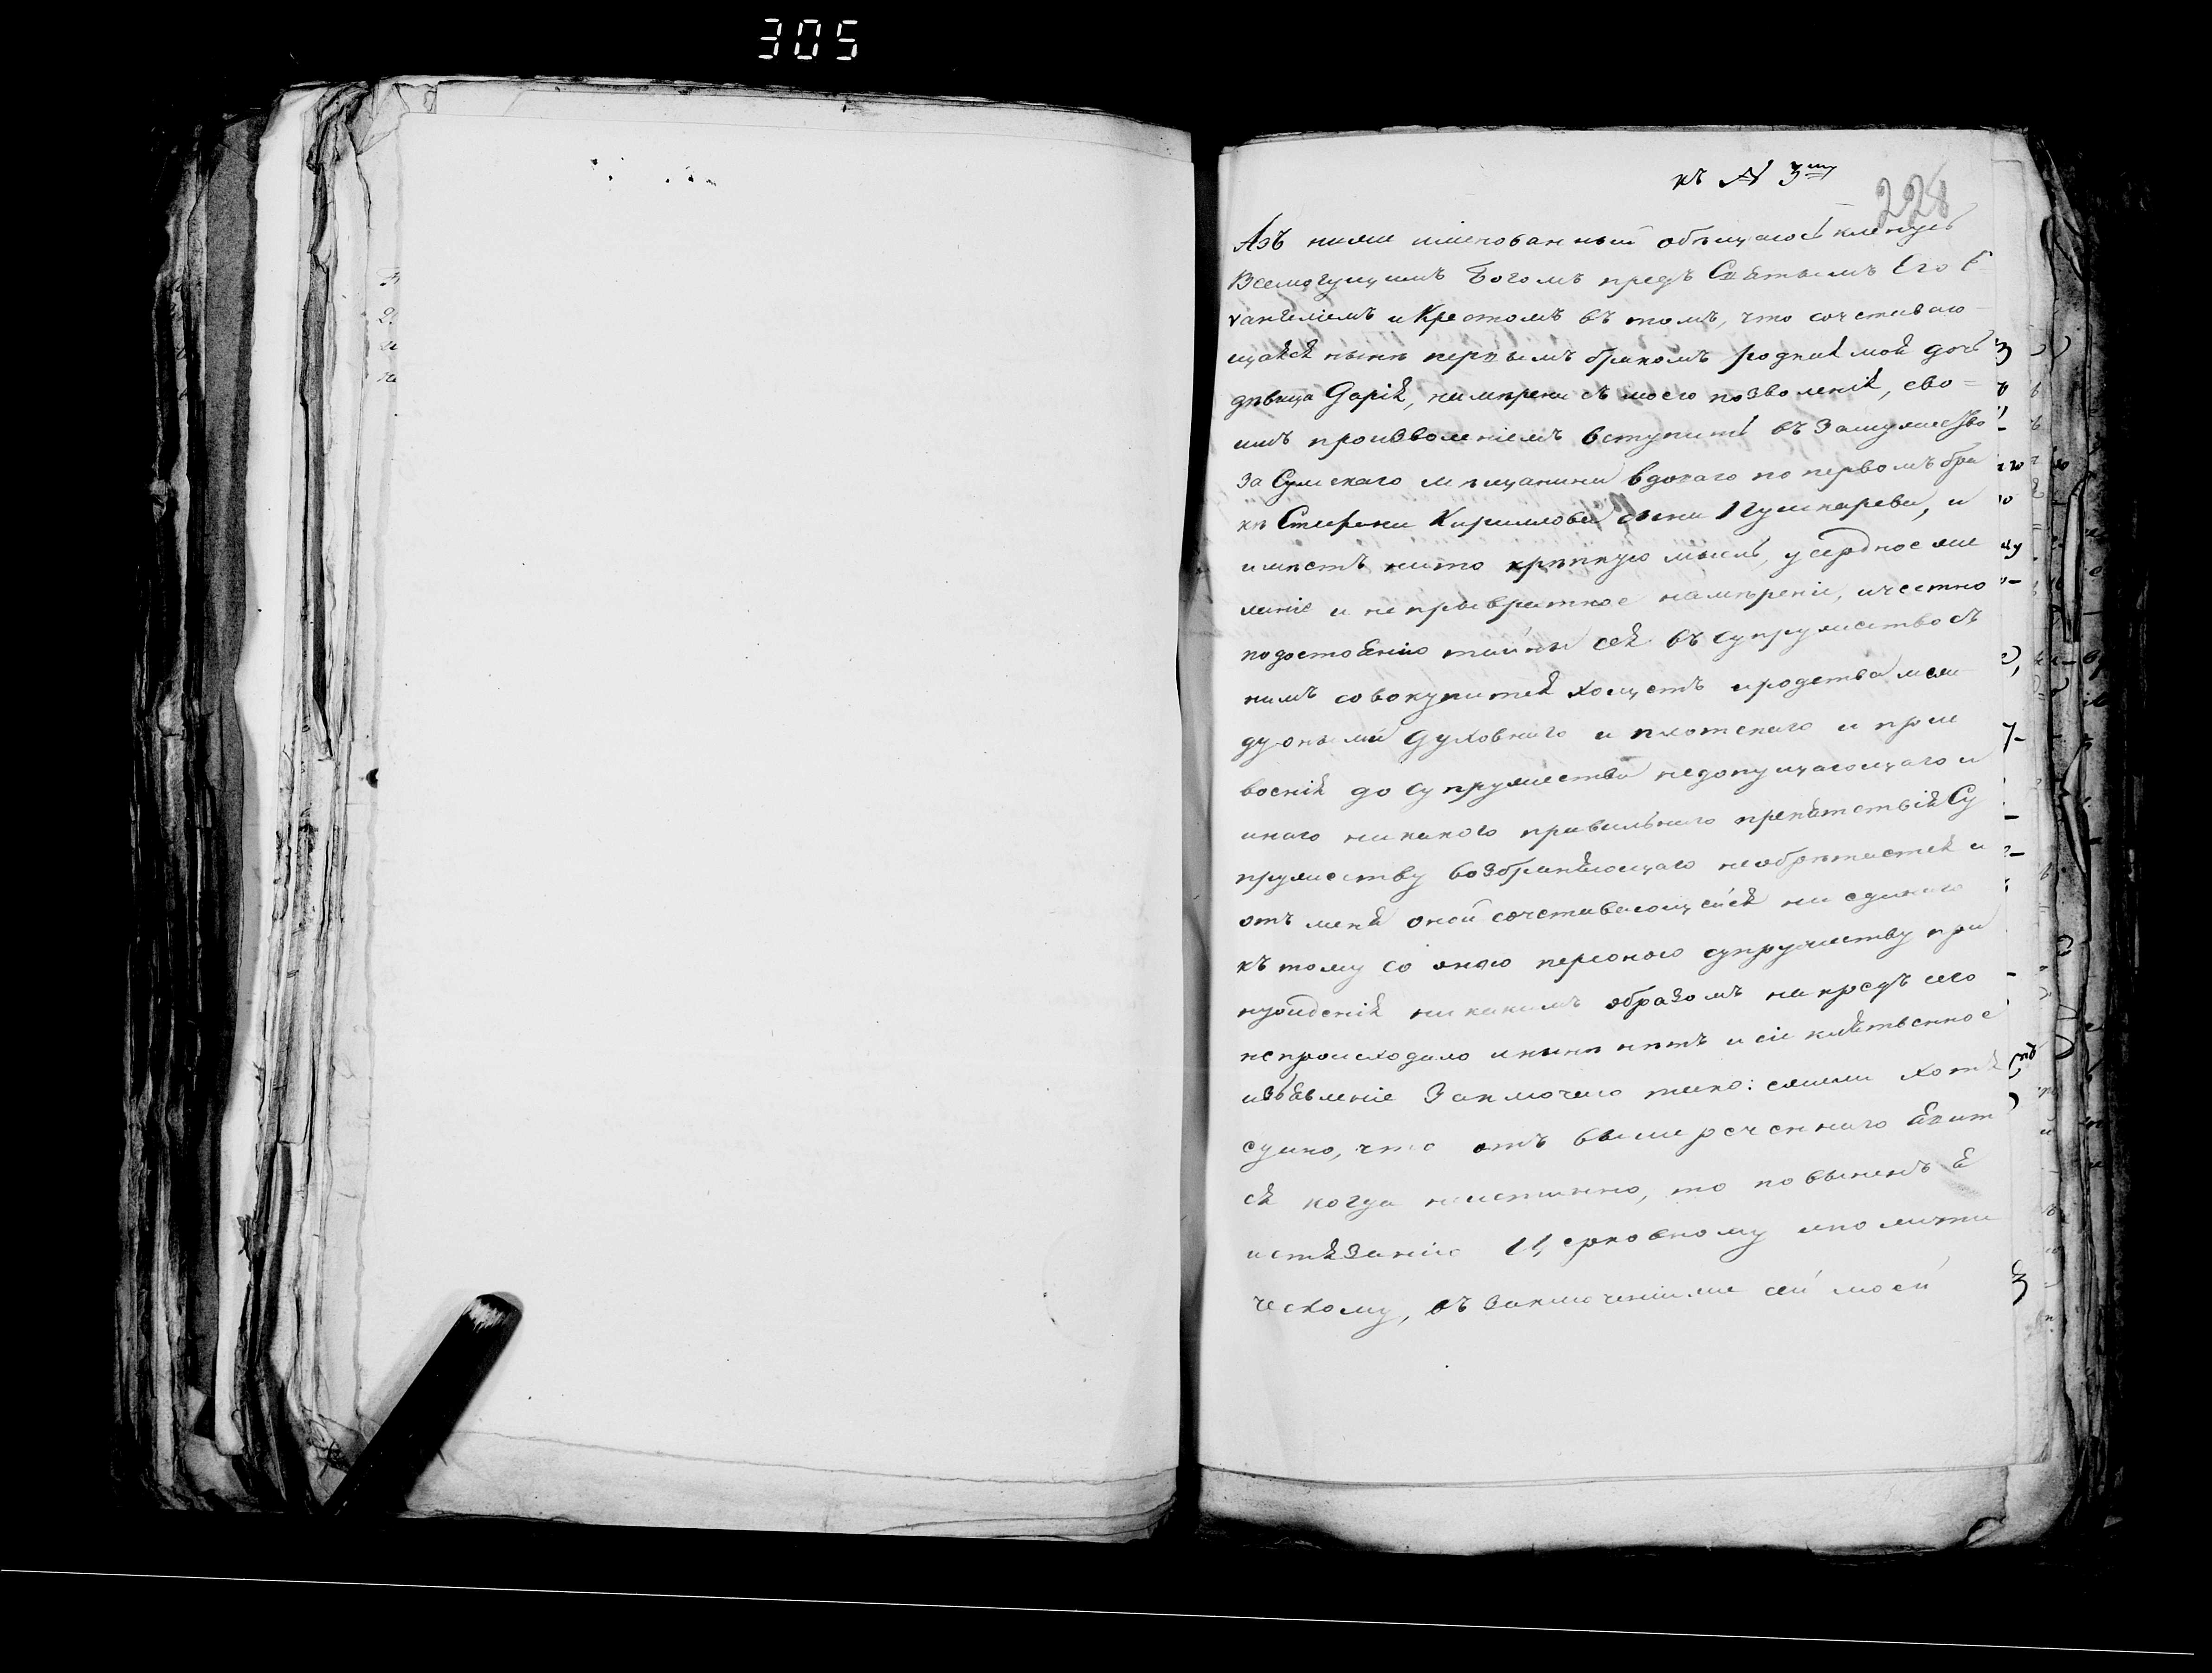 305
къ № 3му
228
Азъ ниже имянованный обѣщаюсь кленусь
Всемогущимъ Богомъ предъ Святымъ Его Е
vангеліемъ и Крестомъ въ томъ, что сочетаваю
щаяся нынѣ первымъ бракомъ родная моя дочь
дѣвица Дарія, намѣрена съ моего позволенія, сво=
имъ произволеніемъ вступить въ замужество
за Сумскаго мѣщанина вдоваго по первомъ бра
кѣ Стефана Кириллова сына Пушкарева, и
имѣетъ на то крѣпкую мысль, усердное же
ланіе и непревратное намѣреніе, и честно
по достоянію тайны сея въ супружество съ
нимъ совокупится хощетъ и родства меж
ду оными духовнаго и плотскаго и при
воснія до супружества недопущающаго и
инаго никакого правильнаго препятствія Су
пружеству возбраняющаго необрѣтается и
отъ меня оной сочетавающейся ни единаго
къ тому со оною персоною супружеству при
нужденія никакимъ образомъ напредъ сего
непроисходило и нынѣ нѣтъ и сіе клятвенное
изъявленіе Заключаю тако: ежели хотя
едино, что отъ вышереченнаго явит
ся когда неистинно, то повиненъ я
истязанію Церковному и полити
ческому, въ заключеніи же сей моей